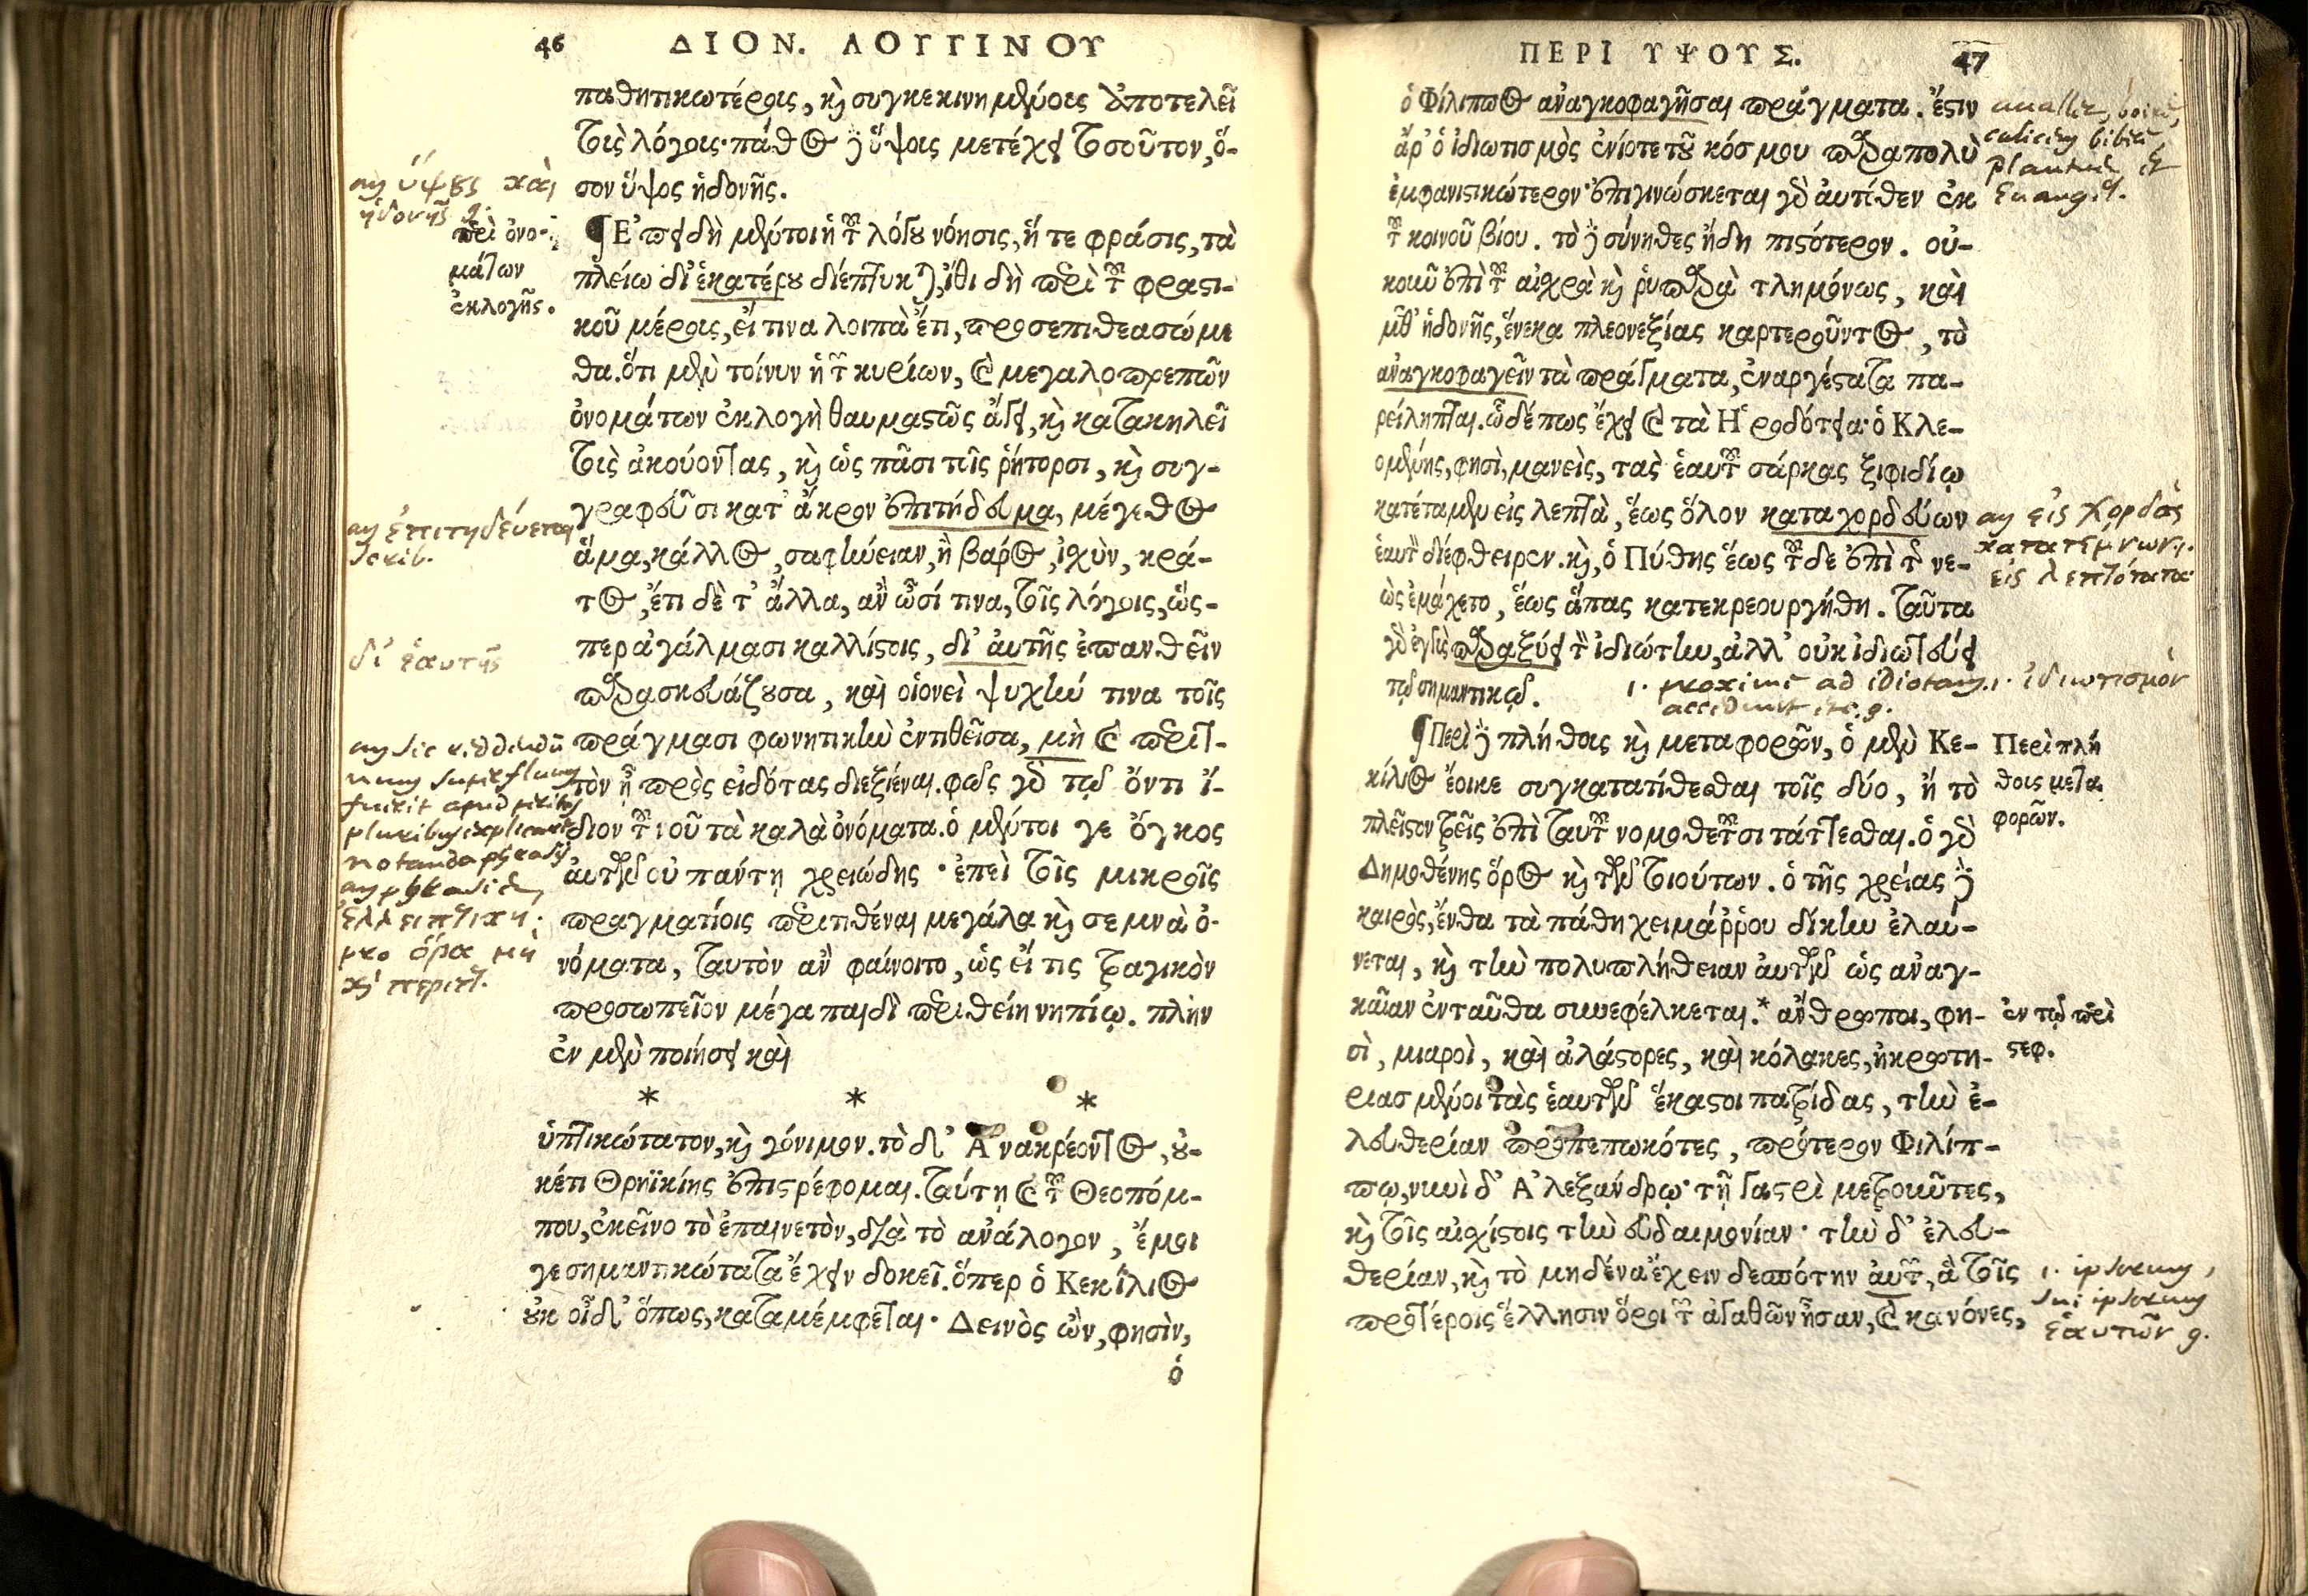 46 ΔΙΟΝ. ΛΟΓΓΙΝΟΥ
παθητικωτέροις, κὶ συγκεκινημένοις ἀποτελεῖ
τοὶς λόγοις· πάθος δὲ ὕψοις μετέχει τοσοῦτον, ὅ-
σον ὕψος ἡδονῆς.
an ὕψȣς καὶ
ἡδονῆς q.
περὶ ὀνο-
μάτων
ἐκλογῆς.
¶ Ἐπειδὴ μέντοι ἡ τοῦ λόγȣ νόησις, ἥ τε φράσις, τὰ
πλείω δι' ἑκατέρȣ διέπτυκται, ἴθι δὴ περὶ τοῦ φραστι-
κοῦ μέροις, εἴ τινα λοιπὰ ἔτι, προσεπιθεασώμε
θα. ὅτι μὲν τοίνυν ἡ τῶν κυρίων, καὶ μεγαλοπρεπῶν
ὀνομάτων ἐκλογὴ θαυμαστῶς ἄγει, κὶ κατακηλεῖ
τοὶς ἀκούοντας, κὶ ὡς πᾶσι τοῖς ῥήτορσι, κὶ συγ-
γραφεῦσι κατ' ἄκρον ἐπιτήδευμα, μέγεθος
an ἐπιτηδεύεται
scrib.
ἅμα, κάλλος, σαφήνειαν, ἢ βαρος, ἰσχὺν, κρά-
τος, ἔτι δὲ τ' ἄλλα, ἂν ὦσί τινα, τοῖς λόγοις, ὥσ-
περ ἀγάλμασι καλλίστοις, δι' αὐτῆς ἐπανθεῖν
δι' ἑαυτῆς
παρασκευάζȣσα, καὶ οἱονεὶ ψυχήν τινα τοῖς
πράγμασι φωνητικὴν ἐντιθεῖσα, μὴ καὶ περιτ-
τὸν ᾖ πρὸς εἰδότας διεξιέναι. φῶς γὰρ τῷ ὄντι ἴ-
διον τοῦ νοῦ τὰ καλὰ ὀνόματα. ὁ μέντοι γε ὄγκος
αὐτῶν οὐ πάντη χρειώδης· ἐπεὶ τοῖς μικροῖς
πραγματίοις περιτιθέναι μεγάλα κὶ σεμνὰ ὀ-
νόματα, ταυτὸν ἂν φαίνοιτο, ὡς εἴ τις τραγικὸν
προσωπεῖον μέγα παιδὶ περιθείη νηπίῳ. πλὴν
ἐν μὲν ποιήσει καὶ
ἐλλειπτικη·
pro ὅρα μὴ
κὶ περιττ.
* * *
ὑπτικώτατον, κὶ γόνιμον. τὸ δ' Ἀνακρέοντος, ȣ-
κέτι Θρηϊκίης ἐπιστρέφομαι. ταύτῃ καὶ τοῦ Θεοπόμ-
που, ἐκεῖνο τὸ ἐπαινετὸν, διὰ τὸ ἀνάλογον, ἔμοι
γε σημαντικώτατα ἔχειν δοκεῖ. ὅπερ ὁ Κεκίλιος
ȣκ οἶδ' ὅπως, καταμέμφεται· Δεινὸς ὢν, φησὶν,
ὁ
ΠΕΡΙ ΥΨΟΥΣ. 47
ὁ Φίλιππος ἀναγκοφαγῆσαι πράγματα. ἔστιν
ἄρ' ὁ ἰδιωτισμὸς ἐνίοτε τοῦ κόσμου παραπολὺ
ἐμφανιστικώτερον· ἐπιγινώσκεται γὰρ αὐτόθεν ἐκ
τοῦ κοινοῦ βίου. τὸ δὲ σύνηθες ἤδη πιστότερον. οὐ-
κοῦν ἐπὶ τοῦ αἰσχρὰ κὶ ῥυπαρὰ τλημόνως, καὶ
μεθ' ἡδονῆς, ἕνεκα πλεονεξίας καρτεροῦντος, τὸ
ἀναγκοφαγεῖν τὰ πράγματα, ἐναργέστατα πα-
ρείληπται. ὧδέ πως ἔχει καὶ τὰ Ἡροδότεια· ὁ Κλε-
ομένης, φησὶ, μανεὶς, τὰς ἑαυτοῦ σάρκας ξιφιδίῳ
κατέταμεν εἰς λεπτὰ, ἕως ὅλον καταχορδεύων
an εἰς χορδὰς
κατατέμνων·
ἑαυτὸν διέφθειρεν. κὶ, ὁ Πύθης ἕως τοῦδε ἐπὶ τῆς νε-
ὼς ἐμάχετο, ἕως ἅπας κατεκρεουργήθη. ταῦτα
γὰρ ἐγγὺς παραξύει τὸν ἰδιώτην, ἀλλ' οὐκ ἰδιωτεύει
τῷ σημαντικῷ.
1. proxime ad idiotam. 1. ἰδιωτισμὸν
accedunt
¶ Περὶ δὲ πλήθοις κὶ μεταφορῶν, ὁ μὲν Κε-
Περὶ πλή
θοις μετα
φορῶν.
κίλιος ἔοικε συγκατατίθεσθαι τοῖς δύο, ἢ τὸ
πλεῖστον τρεῖς ἐπὶ ταυτοῦ νομοθετοῦσι τάττεσθαι. ὁ γὰρ
Δημοσθένης ὅρος κὶ τῶν τοιούτων. ὁ τῆς χρείας δὲ
καιρὸς, ἔνθα τὰ πάθη χειμάῤῥου δίκην ἐλαύ-
νεται, κὶ τὴν πολυπλήθειαν αὐτῶν ὡς ἀναγ-
καῖαν ἐνταῦθα συνεφέλκεται.* ἄνθρωποι, φη-
ἐν τῷ περὶ
στεφ.
σὶ, μιαροὶ, καὶ ἀλάστορες, καὶ κόλακες, ἠκρωτη-
ριασμένοι τὰς ἑαυτῶν ἕκαστοι πατρίδας, τὴν ἐ-
λευθερίαν προπεπωκότες, πρότερον Φιλίπ-
πῳ, νυνὶ δ' Ἀλεξάνδρῳ· τῇ γαστρὶ μετροῦντες,
κὶ τοῖς αἰσχίστοις τὴν εὐδαιμονίαν· τὴν δ' ἐλευ-
θερίαν, κὶ τὸ μηδένα ἔχειν δεσπότην αὐτῶν, ἃ τοῖς
προτέροις ἕλλησιν ὅροι τῶν ἀγαθῶν ἦσαν, καὶ κανόνες,
1. ipsorum,
sui ipsorum
ἑαυτῶν q.